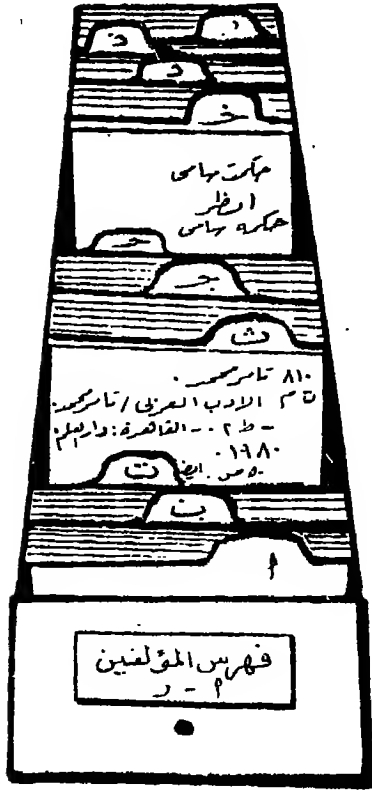 ر
ذ
د
خ
حكمت سامى
انظر
حكمه سامى
ح
ج
ث
٨١٠ تامر محمد .
ت م الادب العربى / تامر محمد .
- ط ٢ . - القاهرة : دار العلم
١٩٨٠ .
ص . ايض
ت
ب
أ
فهرس المؤلفين
أ - ر